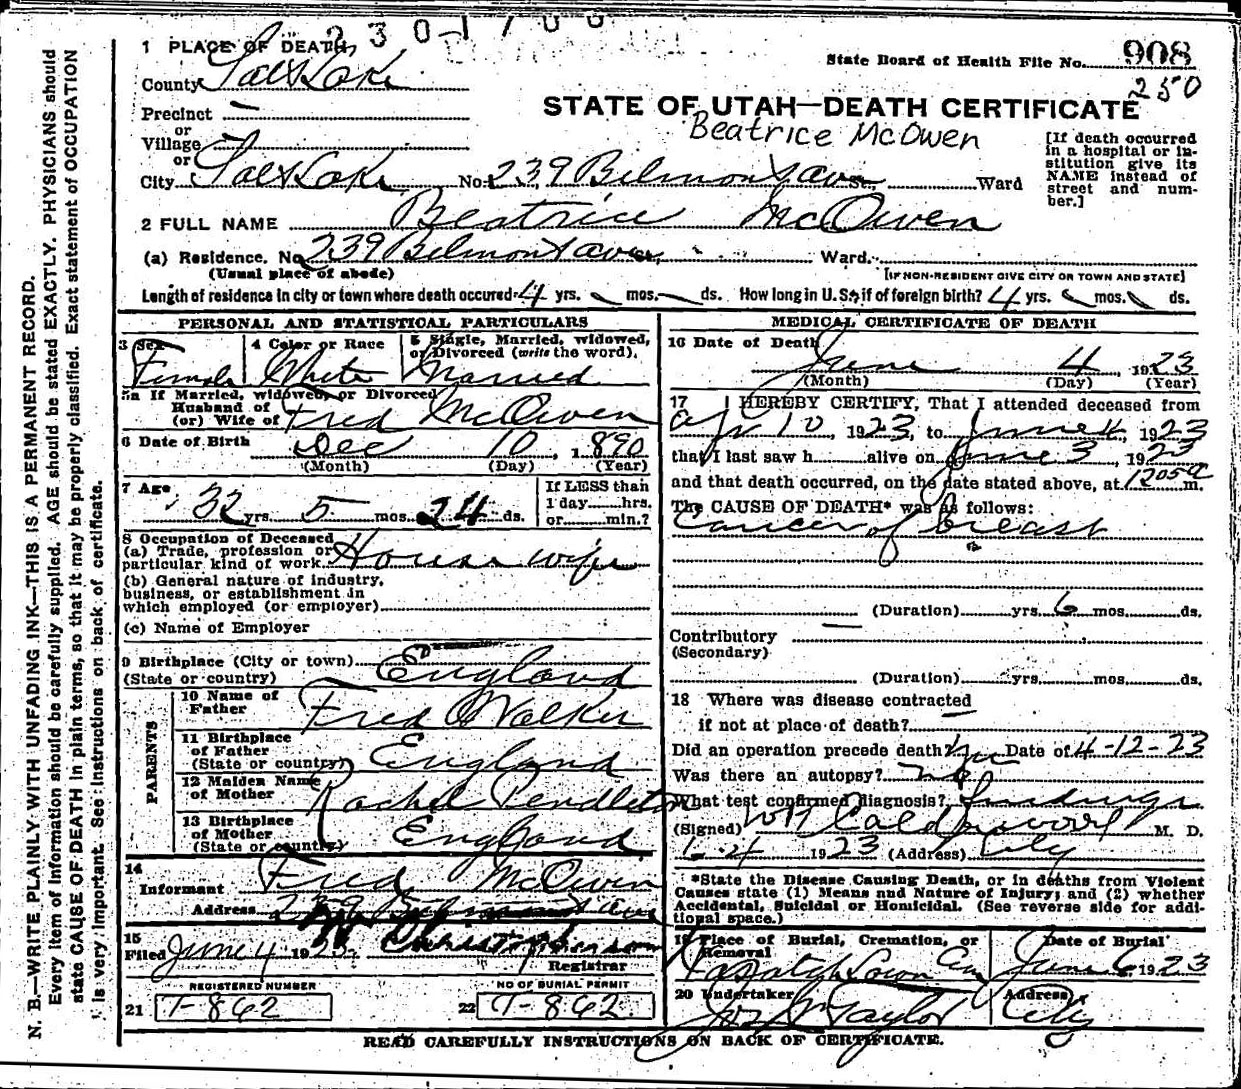 2 3 0 1 7 0 0
1 PLACE OF DEATH
State Board of Health File No. 908
250
County Salt Lake
STATE OF UTAH—DEATH CERTIFICATE
Precinct —
or
Village
or
Beatrice McOwen
[If death occurred in a hospital or institution give its NAME instead of street and number.]
City Salt Lake No. 239 Belmont ave St., Ward
2 FULL NAME Beatrice McOwen
(a) Residence. No. 239 Belmont ave Ward.
(Usual place of abode) [IF NON-RESIDENT GIVE CITY OR TOWN AND STATE]
Length of residence in city or town where death occured 4 yrs. mos. ds. How long in U. S. if of foreign birth? 4 yrs. mos. ds.
PERSONAL AND STATISTICAL PARTICULARS
3 Sex Female
4 Color or Race White
5 Single, Married, widowed, or Divorced (write the word). Married
5a If Married, widowed, or Divorced
Husband of
(or) Wife of Fred McOwen
6 Date of Birth Dec 10, 1890
(Month) (Day) (Year)
7 Age 32 yrs. 5 mos. 24 ds.
If LESS than
1 day hrs.
or min.?
8 Occupation of Deceased
(a) Trade, profession or
particular kind of work House wife
(b) General nature of industry,
business, or establishment in
which employed (or employer)
(c) Name of Employer
9 Birthplace (City or town)
(State or country) England
PARENTS
10 Name of
Father Fred Walker
11 Birthplace
of Father
(State or country) England
12 Maiden Name
of Mother Rachel Pendleton
13 Birthplace
of Mother
(State or country) England
14
Informant Fred McOwen
Address 239 Belmont ave
15
Filed June 4 1923
Registrar
REGISTERED NUMBER
21 T-862
NO OF BURIAL PERMIT
22 T-862
MEDICAL CERTIFICATE OF DEATH
16 Date of Death
June 4 1923
(Month) (Day) (Year)
17 I HEREBY CERTIFY, That I attended deceased from
Apr 10, 1923, to June 4, 1923
that I last saw h alive on June 3, 1923
and that death occurred, on the date stated above, at 1205 a m.
The CAUSE OF DEATH* was as follows:
Cancer of breast
(Duration) yrs. 6 mos. ds.
Contributory —
(Secondary)
(Duration) yrs. mos. ds.
18 Where was disease contracted
if not at place of death?
Did an operation precede death? Yes Date of 4-12-23
Was there an autopsy? no
What test confirmed diagnosis? findings
(Signed) Calderwood M. D.
6-4 1923 (Address) City
*State the Disease Causing Death, or in deaths from Violent
Causes state (1) Means and Nature of Injury; and (2) whether
Accidental, Suicidal or Homicidal. (See reverse side for addi-
tional space.)
19 Place of Burial, Cremation, or
Removal
Wasatch Lawn Cem
Date of Burial
June 6 1923
20 Undertaker Jos Wm Taylor
Address City
READ CAREFULLY INSTRUCTIONS ON BACK OF CERTIFICATE.
N. B.—WRITE PLAINLY WITH UNFADING INK—THIS IS A PERMANENT RECORD.
Every item of information should be carefully supplied. AGE should be stated EXACTLY. PHYSICIANS should
state CAUSE OF DEATH in plain terms, so that it may be properly classified. Exact statement of OCCUPATION
is very important. See instructions on back of certificate.